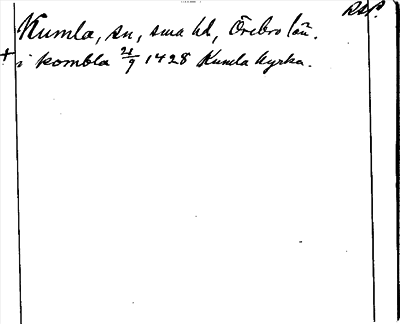 RAP.
Kumla, sn, sma hd, Örebro län.
+ i kombla 21/9 1428 Kumla kyrka.